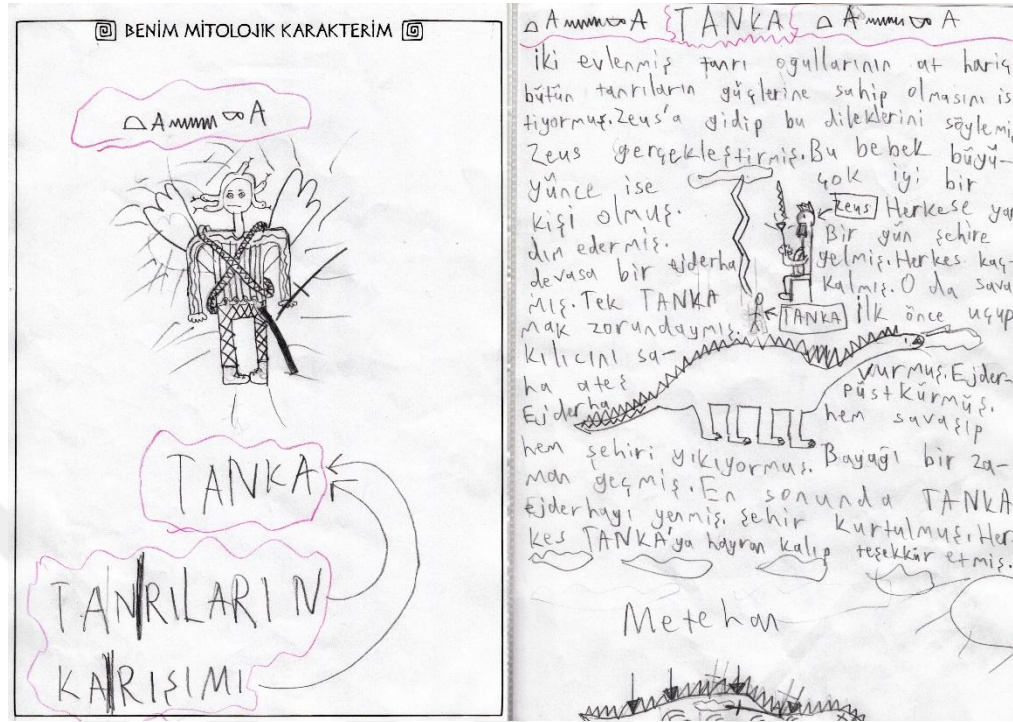 BENİM MİTOLOJİK KARAKTERİM
TANKA
TANRILARIN
KARIŞIMI
TANKA
İki evlenmiş tanrı oğullarının at hariç
bütün tanrıların güçlerine sahip olmasını is
tiyormuş. Zeus'a gidip bu dileklerini söylemiş
Zeus gerçekleştirmiş. Bu bebek büyü-
yünce ise çok iyi bir
kişi olmuş. Zeus Herkese yar
dın edermiş. Bir gün şehire
devasa bir ejderha gelmiş. Herkes kaç-
mış. Tek TANKA kalmış. O da sava
mak zorundaymış. TANKA İlk önce uçup
kılıcını sa-
vurmuş. Ejder-
ha ateş püstkürmüş.
Ejderha hem savaşıp
hem şehiri yıkıyormuş. Bayağı bir za-
man geçmiş. En sonunda TANKA
ejderhayı yenmiş. şehir kurtulmuş. Her
kes TANKA'ya hayran kalıp teşekkür etmiş.
Metehan